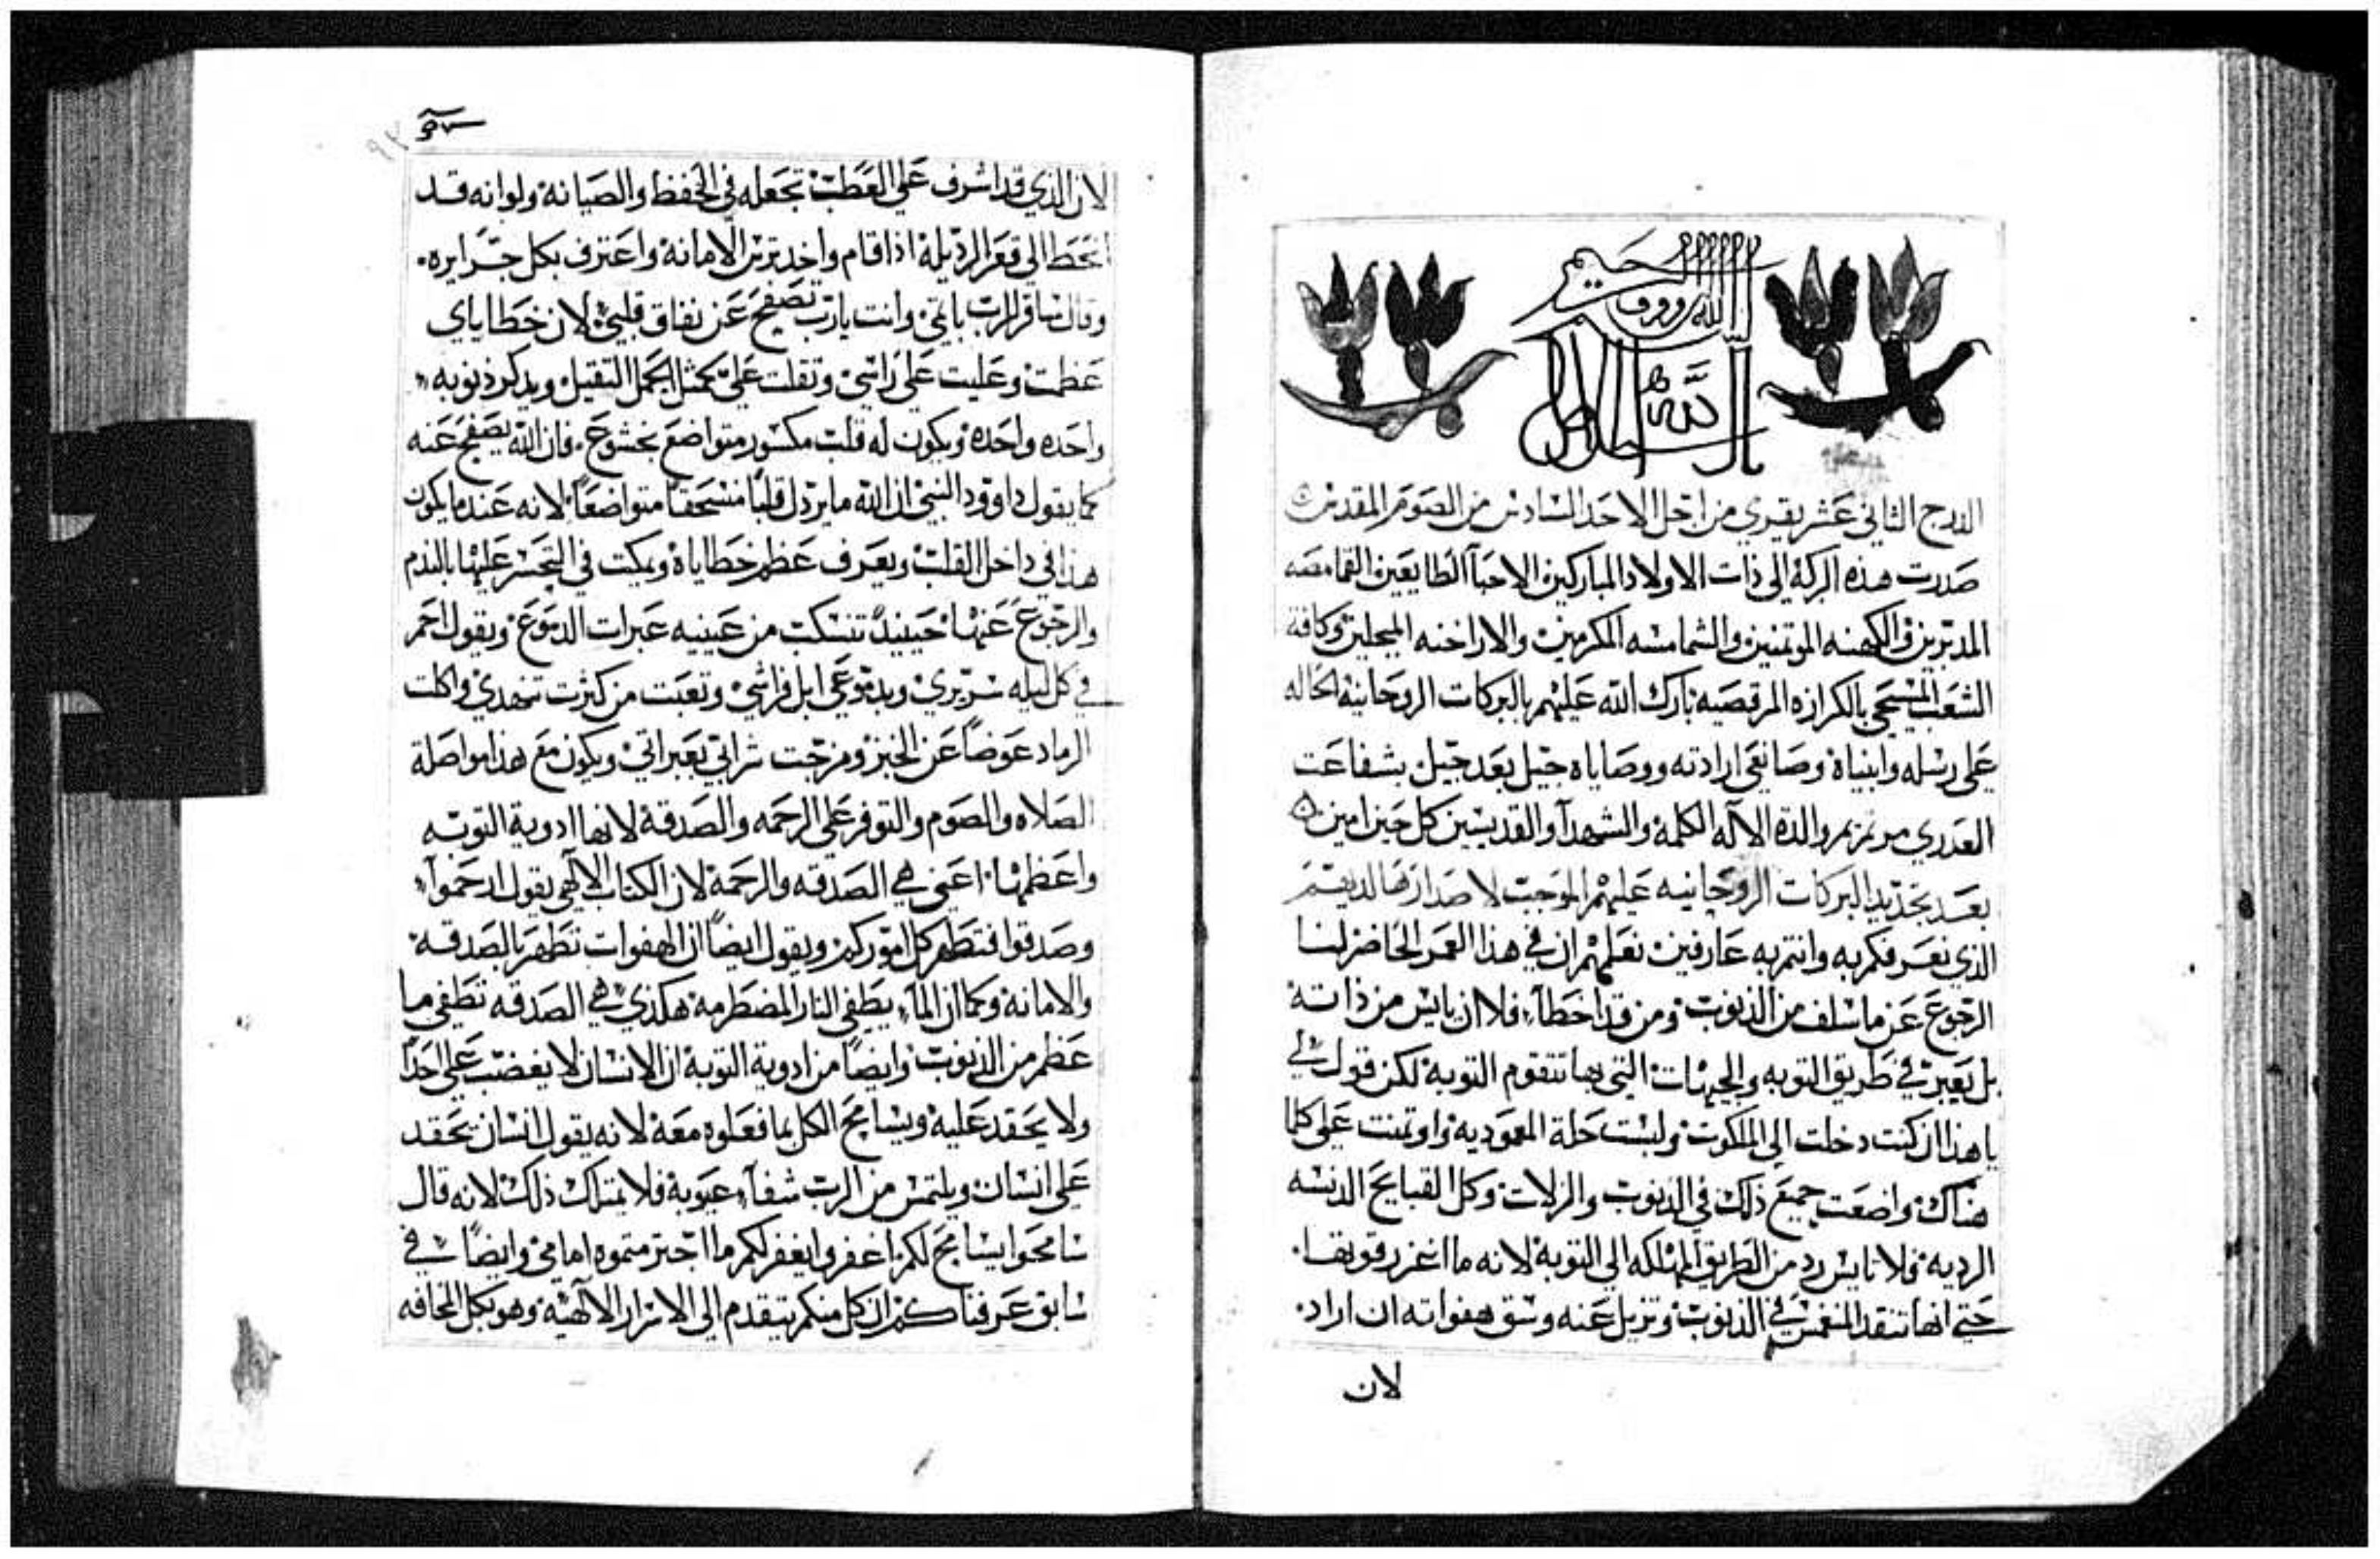 الله الرووف الرحيم
الدرج الثاني عشر يقري من اجل الاحد السادس من الصوم المقدس
صدرت هذه البركة الي ذات الاولاد المباركين الاحبآ الطايعين القمامصه
المدبرين والكهنه الموتمنين والشمامسه المكرمين والاراخنه المبجلين وكافة
الشعب المسيحي بالكرازه المرقصيه بارك الله عليهم بالبركات الروحانيه الحاله
علي رسله وانبياة وصانعي ارادته ووصاياه جيل بعد جيل بشفاعت
العدري مرتمريم والدة الاله الكلمة والشهدآ والقديسين كل حين امين
بعد تجديد البركات الروحانيه عليهم الموجب لاصدارها لديهم
الذي نعرفكم به وانتم به عارفين نعلمهم ان في هذا العمر الحاضر لنا
الرجوع عن ما سلف من الذنوب ومن قد اخطآ فلا ان يايس من ذاته
بل يعبر في طريق التوبه والجهات التي بها تتقوم التوبة لكن قول لي
يا هذا ان كنت دخلت الي الملكوت ولبست حلة المعموديه واوتمنت علي كلما
هناك واضعت جميع ذلك في الذنوب والزلات وكل القبايح الدنسه
الرديه فلا تايس من الطريق المهلكه الي التوبة لانه ما اغزر قوتها
حتي انها تنقد المنغمس في الذنوب وتزيل عنه وسق هفواته ان اراد
لان
لان الذي قد اشرف علي العطب تجعله في الحفظ والصيانة ولو انه قد
انحط الي قعر الرديلة اذا قام واخد ترس الامانة واعترف بكل جرايره
وقال ساقر للرب باثمي وانت يارب تصفح عن نفاق قلبي لان خطاياي
عظمت وعليت علي راسي وثقلت علي كمثل الجمل الثقيل ويدكر ذنوبه
واحده واحده ويكون له قلب مكسور متواضع بخشوع فان الله يصفح عنه
كما يقول داوود النبي ان الله ما يردل قلبا منسحقا متواضعا لانه عند ما يكون
هذا في داخل القلب ويعرف عظم خطاياة ويمكت في التحسر عليها بالندم
والرجوع عنها حينيد تنسكب من عينيه عبرات الدموع ويقول احمر
في كل ليله سريري وبدموعي ابل فراشي وتعبت من كثرت تنهدي واكلت
الرماد عوضا عن الخبز ومزجت شرابي بعبراتي ويكون مع هذا مواصلة
الصلاه والصوم والتوفر علي الرحمه والصدقة لانها ادوية التوبه
واعظمها اعني هي الصدقه والرحمة لان الكتاب الالهي يقول ارحموا
وصدقوا فتطهر كل اموركم ويقول ايضا ان الهفوات تطهر بالصدقه
والامانة وكما ان المآ يطفي النار المضطرمة هكذي هي الصدقه تطفي ما
عظم من الذنوب وايضا من ادوية التوبة ان الانسان لا يغضب علي احدا
ولا يحقد عليه ويسامح الكل بما فعلوه معه لانه يقول انسان يحقد
علي انسان ويلتمس من الرب شفآ عيوبة فلا يمتلك ذلك لانه قال
سامحوا يسامح لكم اغفروا يغفر لكم ما اجترمتموه امامي وايضا في
سابق عرفناكم ان كل منكم يتقدم الي الاسرار الالهية وهو بكل المخافه